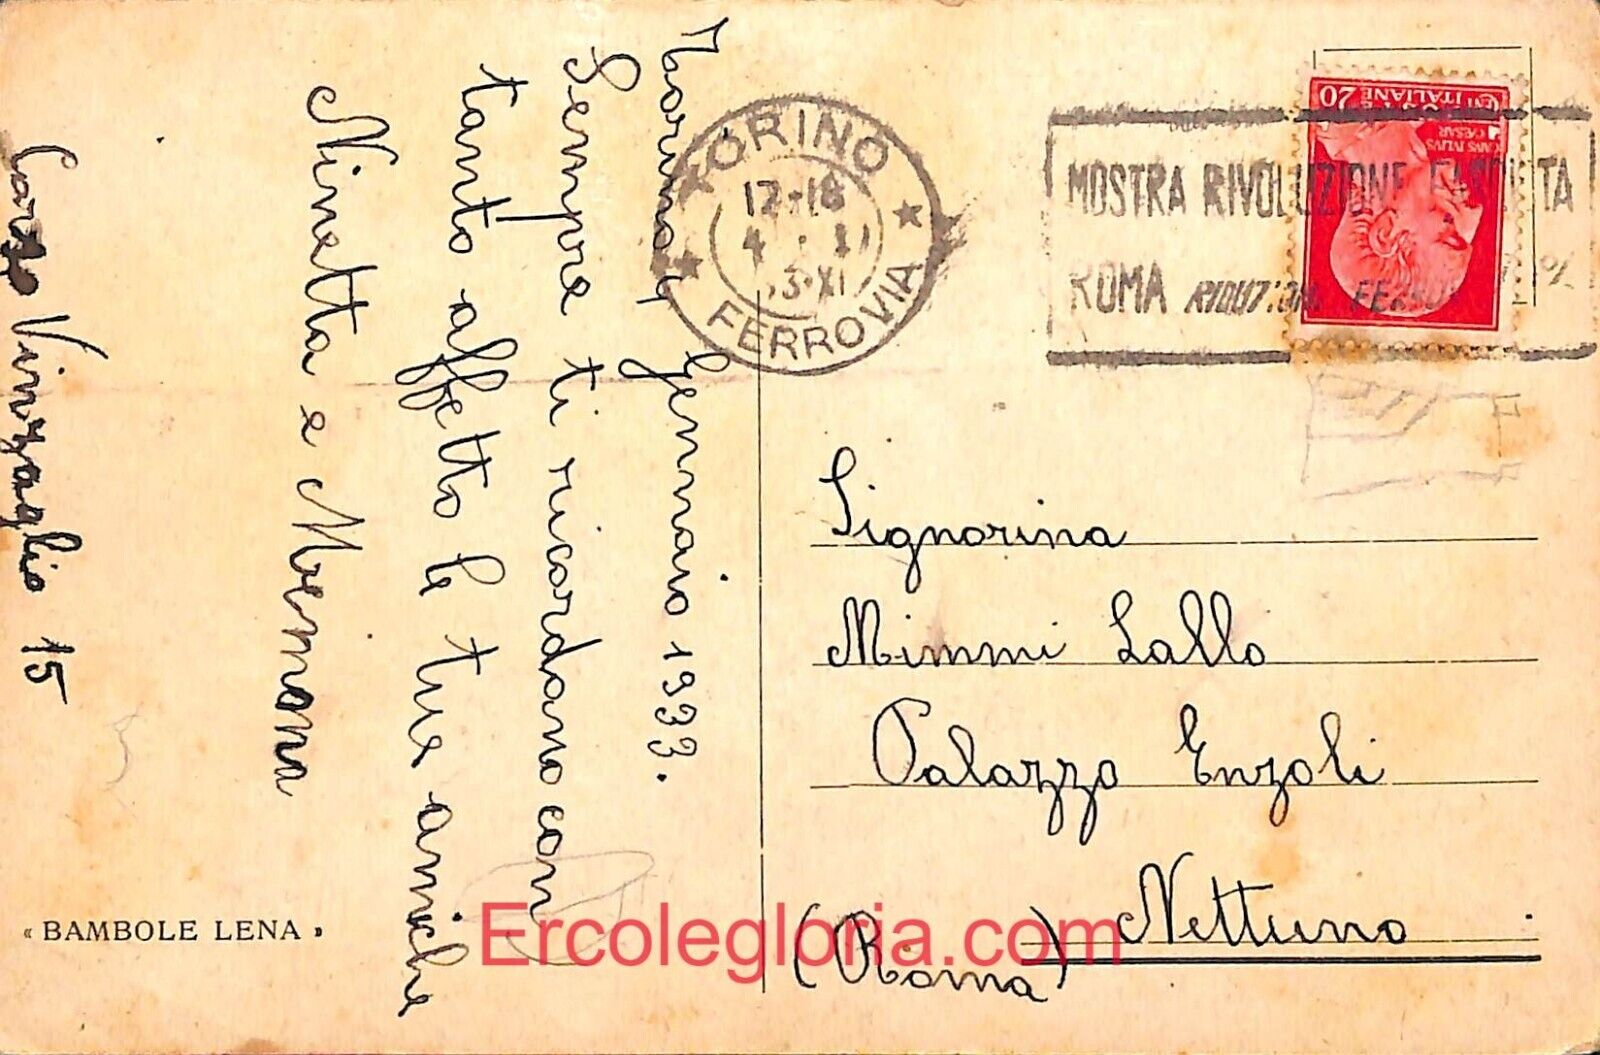 Torino 4 Gennaio 1933.
Sempre ti ricordano con
tanto affetto le tue amiche
Ninetta e Memena
Corso Vinzaglio 15
« BAMBOLE LENA »
TORINO
12-18
4 · 1
33 XI
FERROVIA
MOSTRA RIVOLUZIONE FASCISTA
ROMA RIDUZIONI FERROV %
20
CENT ITALIANE
CAIVS IVLIVS
CAESAR
Signorina
Mimmi Lallo
Palazzo Enzoli
Nettuno
(Roma)
Ercolegloria.com